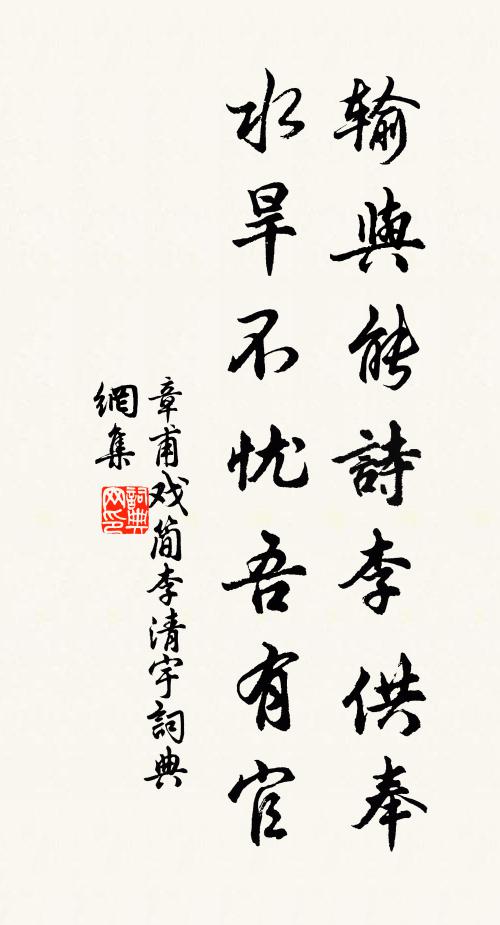 輸與能詩李供奉
水旱不忧吾有官
章甫戏简李清宇詞典
網集
詞典
网印